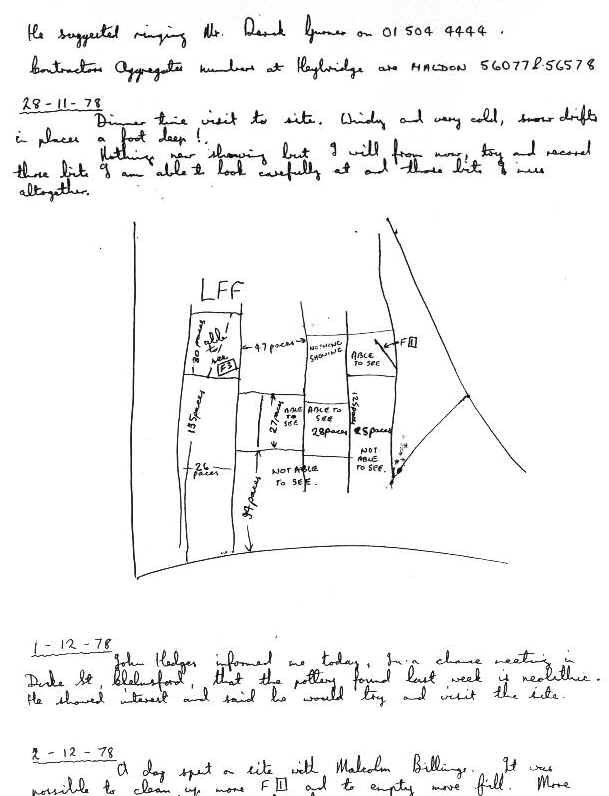 He suggested ringing Mr. Derek Gurner on 01 504 4444.
Contractors Aggregates numbers at Heybridge are MALDON 56077 & 56578
28-11-78
Dinner time visit to site. Windy and very cold, snow drifts
in places a foot deep!.
Nothing new showing but I will from now, try and record
those bits I am able to look carefully at and those bits I miss
altogether.
LFF
30 paces
able to see
F3
47 paces
NOTHING SHOWING
ABLE TO SEE
F1
135 paces
27 paces
ABLE TO SEE
ABLE TO SEE
28 paces
125 paces
25 paces
26 paces
NOT ABLE TO SEE.
NOT ABLE TO SEE.
94 paces
1-12-78
John Hedges informed me today, in a chance meeting in
Duke St, Chelmsford, that the pottery found last week is neolithic.
He showed interest and said he would try and visit the site.
2-12-78
A day spent on site with Malcolm Billings. It was
possible to clean up more F1 and to empty more fill. More